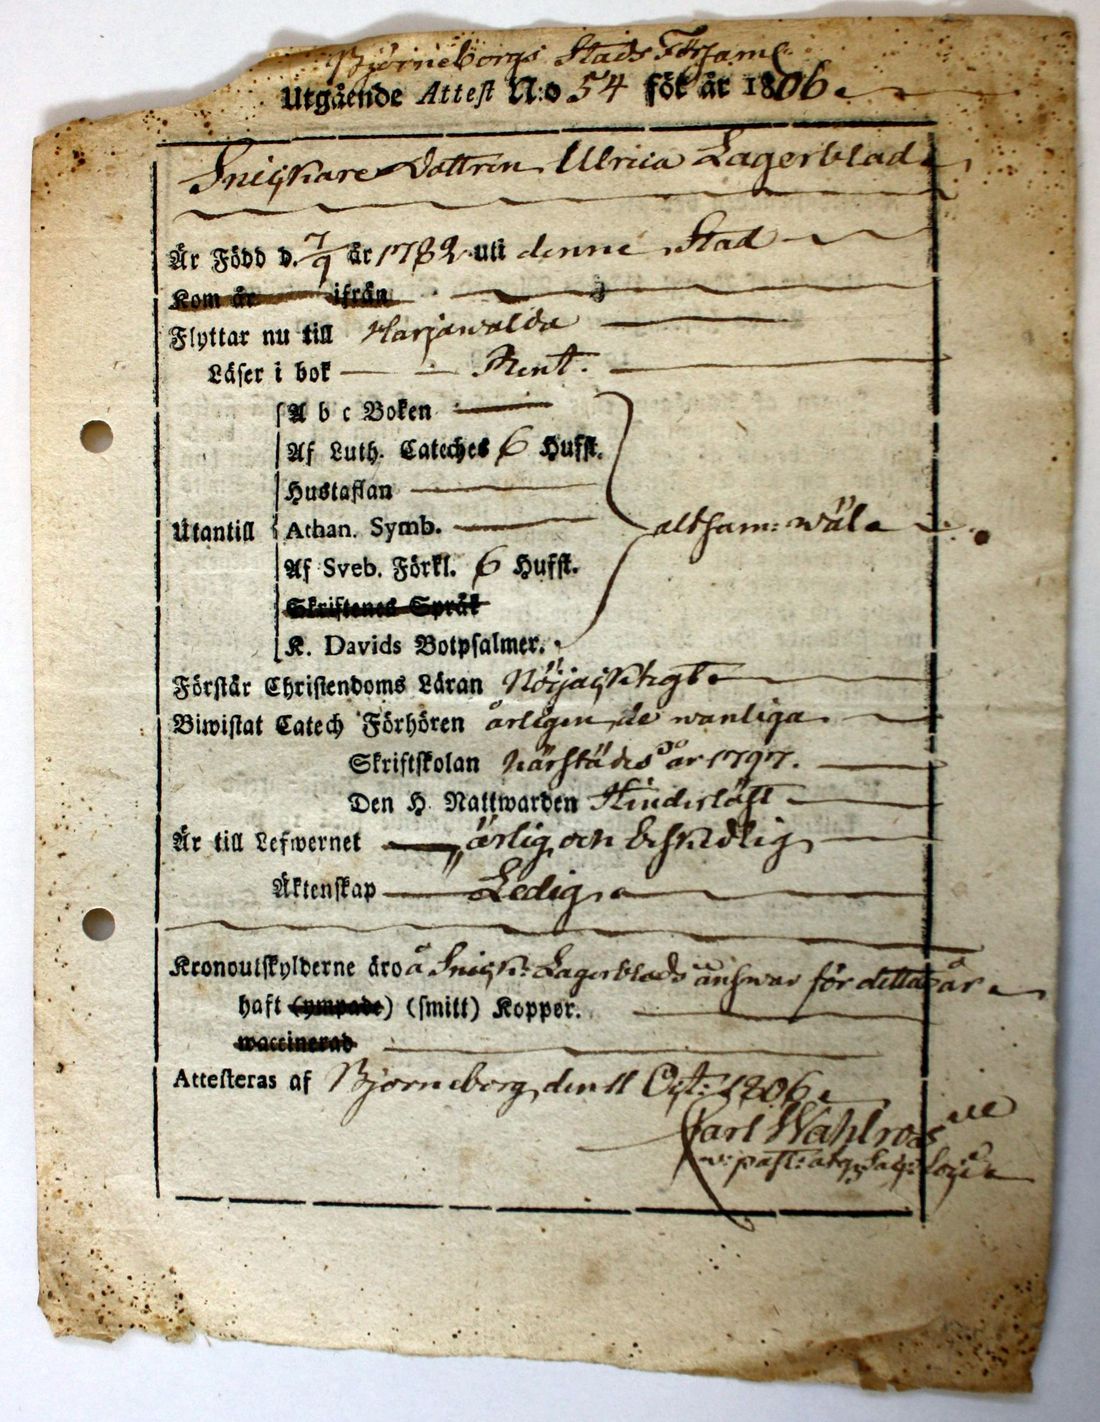 Björneborgs Stads Församl
Utgående Attest N:o 54 för år 1806.
Snickare Dottren Ulrica Lagerblad
Är Född d. 7/9 år 1782 uti denne Stad
Kom år ifrån
Flyttar nu till Harjawalda
Läser i bok Rent.
A b c Boken
Af Luth. Cateches 6 Hufst.
Hustaflan
Utantill Athan. Symb. altsam: wäl
Af Sveb. Förkl. 6 Hufst.
Skriftenes Språk
K. Davids Botpsalmer.
Förstår Christendoms Läran Nöijacktigt
Biwistat Catech Förhören årligen de wanliga
Skriftskolan härstädes år 1797.
Den H. Nattwarden Hinderlöst
Är till Lefwernet ärlig och beskedlig
Äktenskap Ledig
Kronoutskylderne äro å Snick: Lagerblads answar för detta år
haft (ympade) (smitt) Koppor.
waccinerad
Attesteras af Björneborg den 11 Oct: 1806
Carl Wahlroos
v: past: